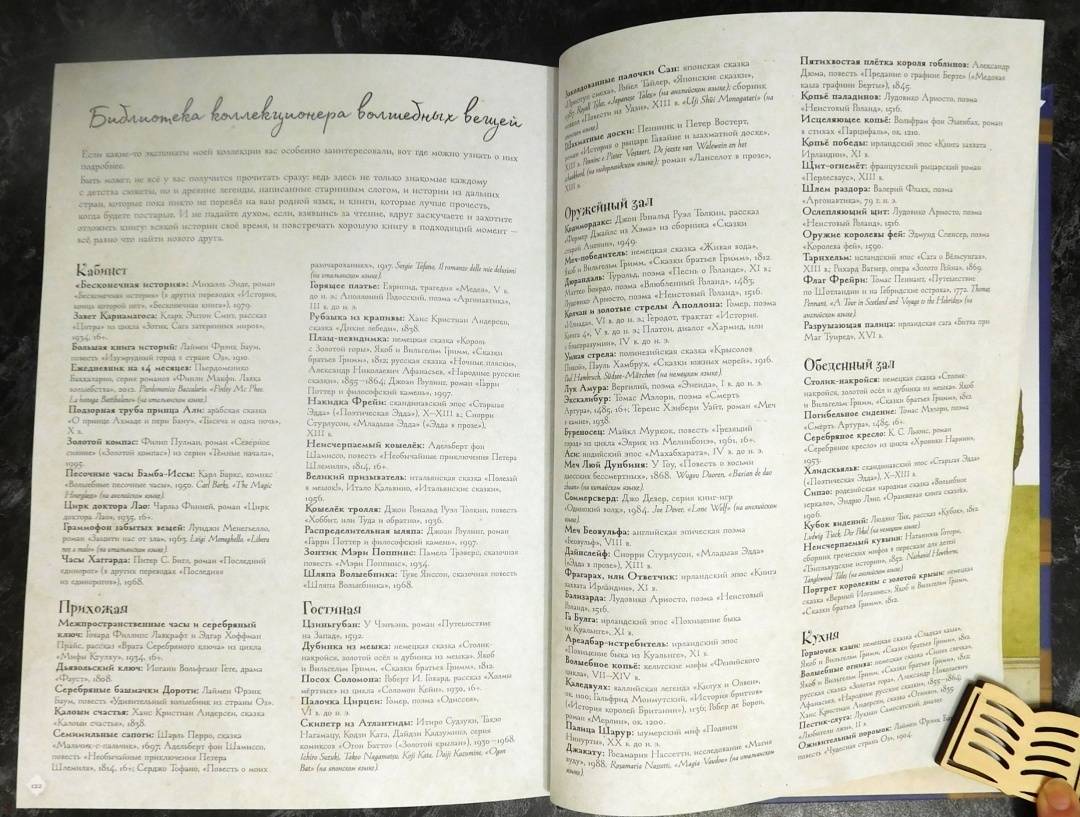 Библиотека коллекционера волшебных вещей
Если какие-то экспонаты моей коллекции вас особенно заинтересовали, вот где можно узнать о них
подробнее.
Быть может, не всё у вас получится прочитать сразу: ведь здесь не только знакомые каждому
с детства сюжеты, но и древние легенды, написанные старинным слогом, и истории из дальних
стран, которые пока никто не перевёл на ваш родной язык, и книги, которые лучше прочесть,
когда будете постарше. И не падайте духом, если, взявшись за чтение, вдруг заскучаете и захотите
отложить книгу: всякой истории своё время, и повстречать хорошую книгу в подходящий момент —
всё равно что найти нового друга.
Кабинет
«Бесконечная история»: Михаэль Энде, роман
«Бесконечная история» (в других переводах «История,
конца которой нет», «Бесконечная книга»), 1979.
Завет Карнамагоса: Кларк Эштон Смит, рассказ
«Кситра» из цикла «Зотик. Сага затерянных миров»,
1934, 16+.
Большая книга историй: Лаймен Фрэнк Баум,
повесть «Изумрудный город в стране Оз», 1910.
Ежедневник на 14 месяцев: Пьердоменико
Баккаларио, серия романов «Финли Макфи. Лавка
волшебства», 2012. Pierdomenico Baccalario
(на итальянском языке).
Подзорная труба принца Али: арабская сказка
«О принце Ахмаде и пери Бану», «Тысяча и одна ночь»,
X в.
Золотой компас: Филип Пулман, роман «Северное
сияние» («Золотой компас») из серии «Тёмные начала»,
1995.
Песочные часы Бамба-Иссы: Карл Баркс, комикс
«Волшебные песочные часы», 1950. Carl Barks, «The Magic
Hourglass» (на английском языке).
Цирк доктора Лао: Чарльз Финней, роман «Цирк
доктора Лао», 1935, 16+.
Граммофон забытых вещей: Луиджи Менегьелло,
роман «Защити нас от зла», 1963. Luigi Meneghello, «Libera
nos a malo» (на итальянском языке).
Часы Хаггарда: Питер С. Бигл, роман «Последний
единорог» (в других переводах «Последняя
из единорогов»), 1968.
Прихожая
Межпространственные часы и серебряный
ключ: Говард Филлипс Лавкрафт и Эдгар Хоффман
Прайс, рассказ «Врата Серебряного ключа» из цикла
«Мифы Ктулху», 1934, 16+.
Дьявольский ключ: Иоганн Вольфганг Гёте, драма
«Фауст», 1808.
Серебряные башмачки Дороти: Лаймен Фрэнк
Баум, повесть «Удивительный волшебник из страны Оз».
Калоши счастья: Ханс Кристиан Андерсен, сказка
«Калоши счастья», 1838.
Семимильные сапоги: Шарль Перро, сказка
«Мальчик-с-пальчик», 1697; Адельберт фон Шамиссо,
повесть «Необычайные приключения Петера
Шлемиля», 1814, 16+; Серджо Тофано, «Повесть о моих
122
разочарованиях», 1917. Sergio Tofano, Il romanzo delle mie delusioni
(на итальянском языке).
Горящее платье: Еврипид, трагедия «Медея», V в.
до н. э.; Аполлоний Родосский, поэма «Аргонавтика»,
III в. до н. э.
Рубашка из крапивы: Ханс Кристиан Андерсен,
сказка «Дикие лебеди», 1838.
Плащ-невидимка: немецкая сказка «Король
с Золотой горы», Якоб и Вильгельм Гримм, «Сказки
братьев Гримм», 1812; русская сказка «Ночные пляски»,
Александр Николаевич Афанасьев, «Народные русские
сказки», 1855—1864; Джоан Роулинг, роман «Гарри
Поттер и философский камень», 1997.
Накидка Фрейи: скандинавский эпос «Старшая
Эдда» («Поэтическая Эдда»), X—XIII в.; Снорри
Стурлусон, «Младшая Эдда» («Эдда в прозе»),
XIII в.
Неисчерпаемый кошелёк: Адельберт фон
Шамиссо, повесть «Необычайные приключения Петера
Шлемиля», 1814, 16+.
Великий призыватель: итальянская сказка «Полезай
в мешок!», Итало Кальвино, «Итальянские сказки»,
1956.
Кошелёк тролля: Джон Рональд Руэл Толкин, повесть
«Хоббит, или Туда и обратно», 1936.
Распределительная шляпа: Джоан Роулинг, роман
«Гарри Поттер и философский камень», 1997.
Зонтик Мэри Поппинс: Памела Трэверс, сказочная
повесть «Мэри Поппинс», 1934.
Шляпа Волшебника: Туве Янссон, сказочная повесть
«Шляпа Волшебника», 1968.
Гостиная
Цзиньгубан: У Чэнъэнь, роман «Путешествие
на Запад», 1592.
Дубинка из мешка: немецкая сказка «Столик-
накройся, золотой осёл и дубинка из мешка», Якоб
и Вильгельм Гримм, «Сказки братьев Гримм», 1812.
Посох Соломона: Роберт И. Говард, рассказ «Холмы
мёртвых» из цикла «Соломон Кейн», 1930, 16+.
Палочка Цирцеи: Гомер, поэма «Одиссея»,
VI в. до н. э.
Скипетр из Атлантиды: Итиро Судзуки, Такэо
Нагамацу, Кодзи Ката, Дайдзи Кадзумине, серия
комиксов «Огон Батто» («Золотой крылан»), 1930—1968.
Ichiro Suzuki, Takeo Nagamatsu, Koji Kata, Daiji Kazumine, «Ogon
Bat» (на японском языке).
Заколдованные палочки Сан: японская сказка
Ройел Тайлер, «Японские сказки»,
1987. Royall Tyler, «Japanese Tales» (на английском языке); сборник
«Повести из Удзи», XIII в. «Uji Shūi Monogatari» (на
японском языке).
Шахматные доски: Пенник и Петер Востерт,
роман «История о рыцаре Гавайне и шахматной доске»,
XIII в. Penninc e Pieter Vostaert, De jeeste van Walewein en het
schaakbord (на нидерландском языке); роман «Ланселот в прозе»,
XIII в.
Оружейный зал
Кодимордакс: Джон Рональд Руэл Толкин, рассказ
«Фермер Джайлс из Хэма» из сборника «Сказки
старой Англии», 1949.
Меч-победитель: немецкая сказка «Живая вода»,
Якоб и Вильгельм Гримм, «Сказки братьев Гримм», 1812.
Дюрандаль: Турольд, поэма «Песнь о Роланде», XI в.;
Маттео Боярдо, поэма «Влюблённый Роланд», 1483;
Лудовико Ариосто, поэма «Неистовый Роланд», 1516.
Колчан и золотые стрелы Аполлона: Гомер, поэма
«Илиада», VI в. до н. э.; Геродот, трактат «История.
Книга 4», V в. до н. э.; Платон, диалог «Хармид, или
о благоразумии», IV в. до н. э.
Умная стрела: полинезийская сказка «Крысолов
Пикои», Пауль Хамбрух, «Сказки южных морей», 1916.
Paul Hambruch, Südsee-Märchen (на немецком языке).
Лук Амура: Вергилий, поэма «Энеида», I в. до н. э.
Экскалибур: Томас Мэлори, поэма «Смерть
Артура», 1485, 16+; Теренс Хэнбери Уайт, роман «Меч
в камне», 1938.
Буреносец: Майкл Муркок, повесть «Грезящий
город» из цикла «Элрик из Мелнибонэ», 1961, 16+.
Аси: индийский эпос «Махабхарата», IV в. до н. э.
Меч Люй Дунбиня: У Гоу, «Повесть о восьми
даосских бессмертных», 1868. Wugou Daoren, «Baxian de dao
zhuan» (на китайском языке).
Соммерсверд: Джо Девер, серия книг-игр
«Одинокий волк», 1984. Joe Dever, «Lone Wolf» (на английском
языке).
Меч Беовульфа: английская эпическая поэма
«Беовульф», VIII в.
Дайнслейф: Снорри Стурлусон, «Младшая Эдда»
(«Эдда в прозе»), XIII в.
Фрагарах, или Ответчик: ирландский эпос «Книга
захвата Ирландии», XI в.
Бализарда: Лудовико Ариосто, поэма «Неистовый
Роланд», 1516.
Га Булга: ирландский эпос «Похищение быка
из Куальнге», XI в.
Ареадбар-истребитель: ирландский эпос
«Похищение быка из Куальнге», XI в.
Волшебное копьё: кельтские мифы «Фенийского
цикла», VII—XIV в.
Каледвулх: валлийская легенда «Килух и Олвен»,
ок. 1100; Гальфрид Монмутский, «История бриттов»
(«История королей Британии»), 1136; Робер де Борон,
роман «Мерлин», ок. 1200.
Палица Шарур: шумерский миф «Подвиги
Нинурты», XX в. до н. э.
Джакату: Росамария Нассетти, исследование «Магия
вуду», 1988. Rosamaria Nassetti, «Magia Vaudou» (на итальянском
языке).
Пятихвостая плётка короля гоблинов: Александр
Дюма, повесть «Предание о графине Берте» («Медовая
каша графини Берты»), 1845.
Копьё паладинов: Лудовико Ариосто, поэма
«Неистовый Роланд», 1516.
Исцеляющее копьё: Вольфрам фон Эшенбах, роман
в стихах «Парцифаль», ок. 1210.
Копьё победы: ирландский эпос «Книга захвата
Ирландии», XI в.
Щит-огнемёт: французский рыцарский роман
«Перлесваус», XIII в.
Шлем раздора: Валерий Флакк, поэма
«Аргонавтика», 79 г. н. э.
Ослепляющий щит: Лудовико Ариосто, поэма
«Неистовый Роланд», 1516.
Оружие королевы фей: Эдмунд Спенсер, поэма
«Королева фей», 1590.
Тарнхельм: исландский эпос «Сага о Вёльсунгах»,
XIII в.; Рихард Вагнер, опера «Золото Рейна», 1869.
Флаг Фрейри: Томас Пеннант, «Путешествие
по Шотландии и на Гебридские острова», 1772. Thomas
Pennant, «A Tour in Scotland and Voyage to the Hebrides» (на
английском языке).
Разрушающая палица: ирландская сага «Битва при
Маг Туиред», XVI в.
Обеденный зал
Столик-накройся: немецкая сказка «Столик-
накройся, золотой осёл и дубинка из мешка», Якоб
и Вильгельм Гримм, «Сказки братьев Гримм», 1812.
Погибельное сидение: Томас Мэлори, поэма
«Смерть Артура», 1485, 16+.
Серебряное кресло: К. С. Льюис, роман
«Серебряное кресло» из цикла «Хроники Нарнии»,
1953.
Хлидскьяльв: скандинавский эпос «Старшая Эдда»
(«Поэтическая Эдда»), X—XIII в.
Сипао: родезийская народная сказка «Волшебное
зеркало», Эндрю Лэнг, «Оранжевая книга сказок»,
1906.
Кубок видений: Людвиг Тик, рассказ «Кубок», 1812.
Ludwig Tieck, Der Pokal (на немецком языке).
Неисчерпаемый кувшин: Натаниэль Готорн,
сборник греческих мифов в пересказе для детей
«Тэнглвудские истории», 1853. Nathaniel Hawthorne,
Tanglewood Tales (на английском языке).
Портрет королевны с золотой крыши: немецкая
сказка «Верный Иоганнес», Якоб и Вильгельм Гримм,
«Сказки братьев Гримм», 1812.
Кухня
Горшочек каши: немецкая сказка «Сладкая каша»,
Якоб и Вильгельм Гримм, «Сказки братьев Гримм», 1812.
Волшебные огнива: немецкая сказка «Синяя свечка»,
Якоб и Вильгельм Гримм, «Сказки братьев Гримм», 1812;
русская сказка «Золотая гора», Александр Николаевич
Афанасьев, «Народные русские сказки», 1855—1864;
Ханс Кристиан Андерсен, сказка «Огниво», 1835
Пестик-слуга: Лукиан Самосатский, диалог
«Любители лжи», II в.
Оживительный порошок: Лаймен Фрэнк Баум,
повесть «Чудесная страна Оз», 1904.